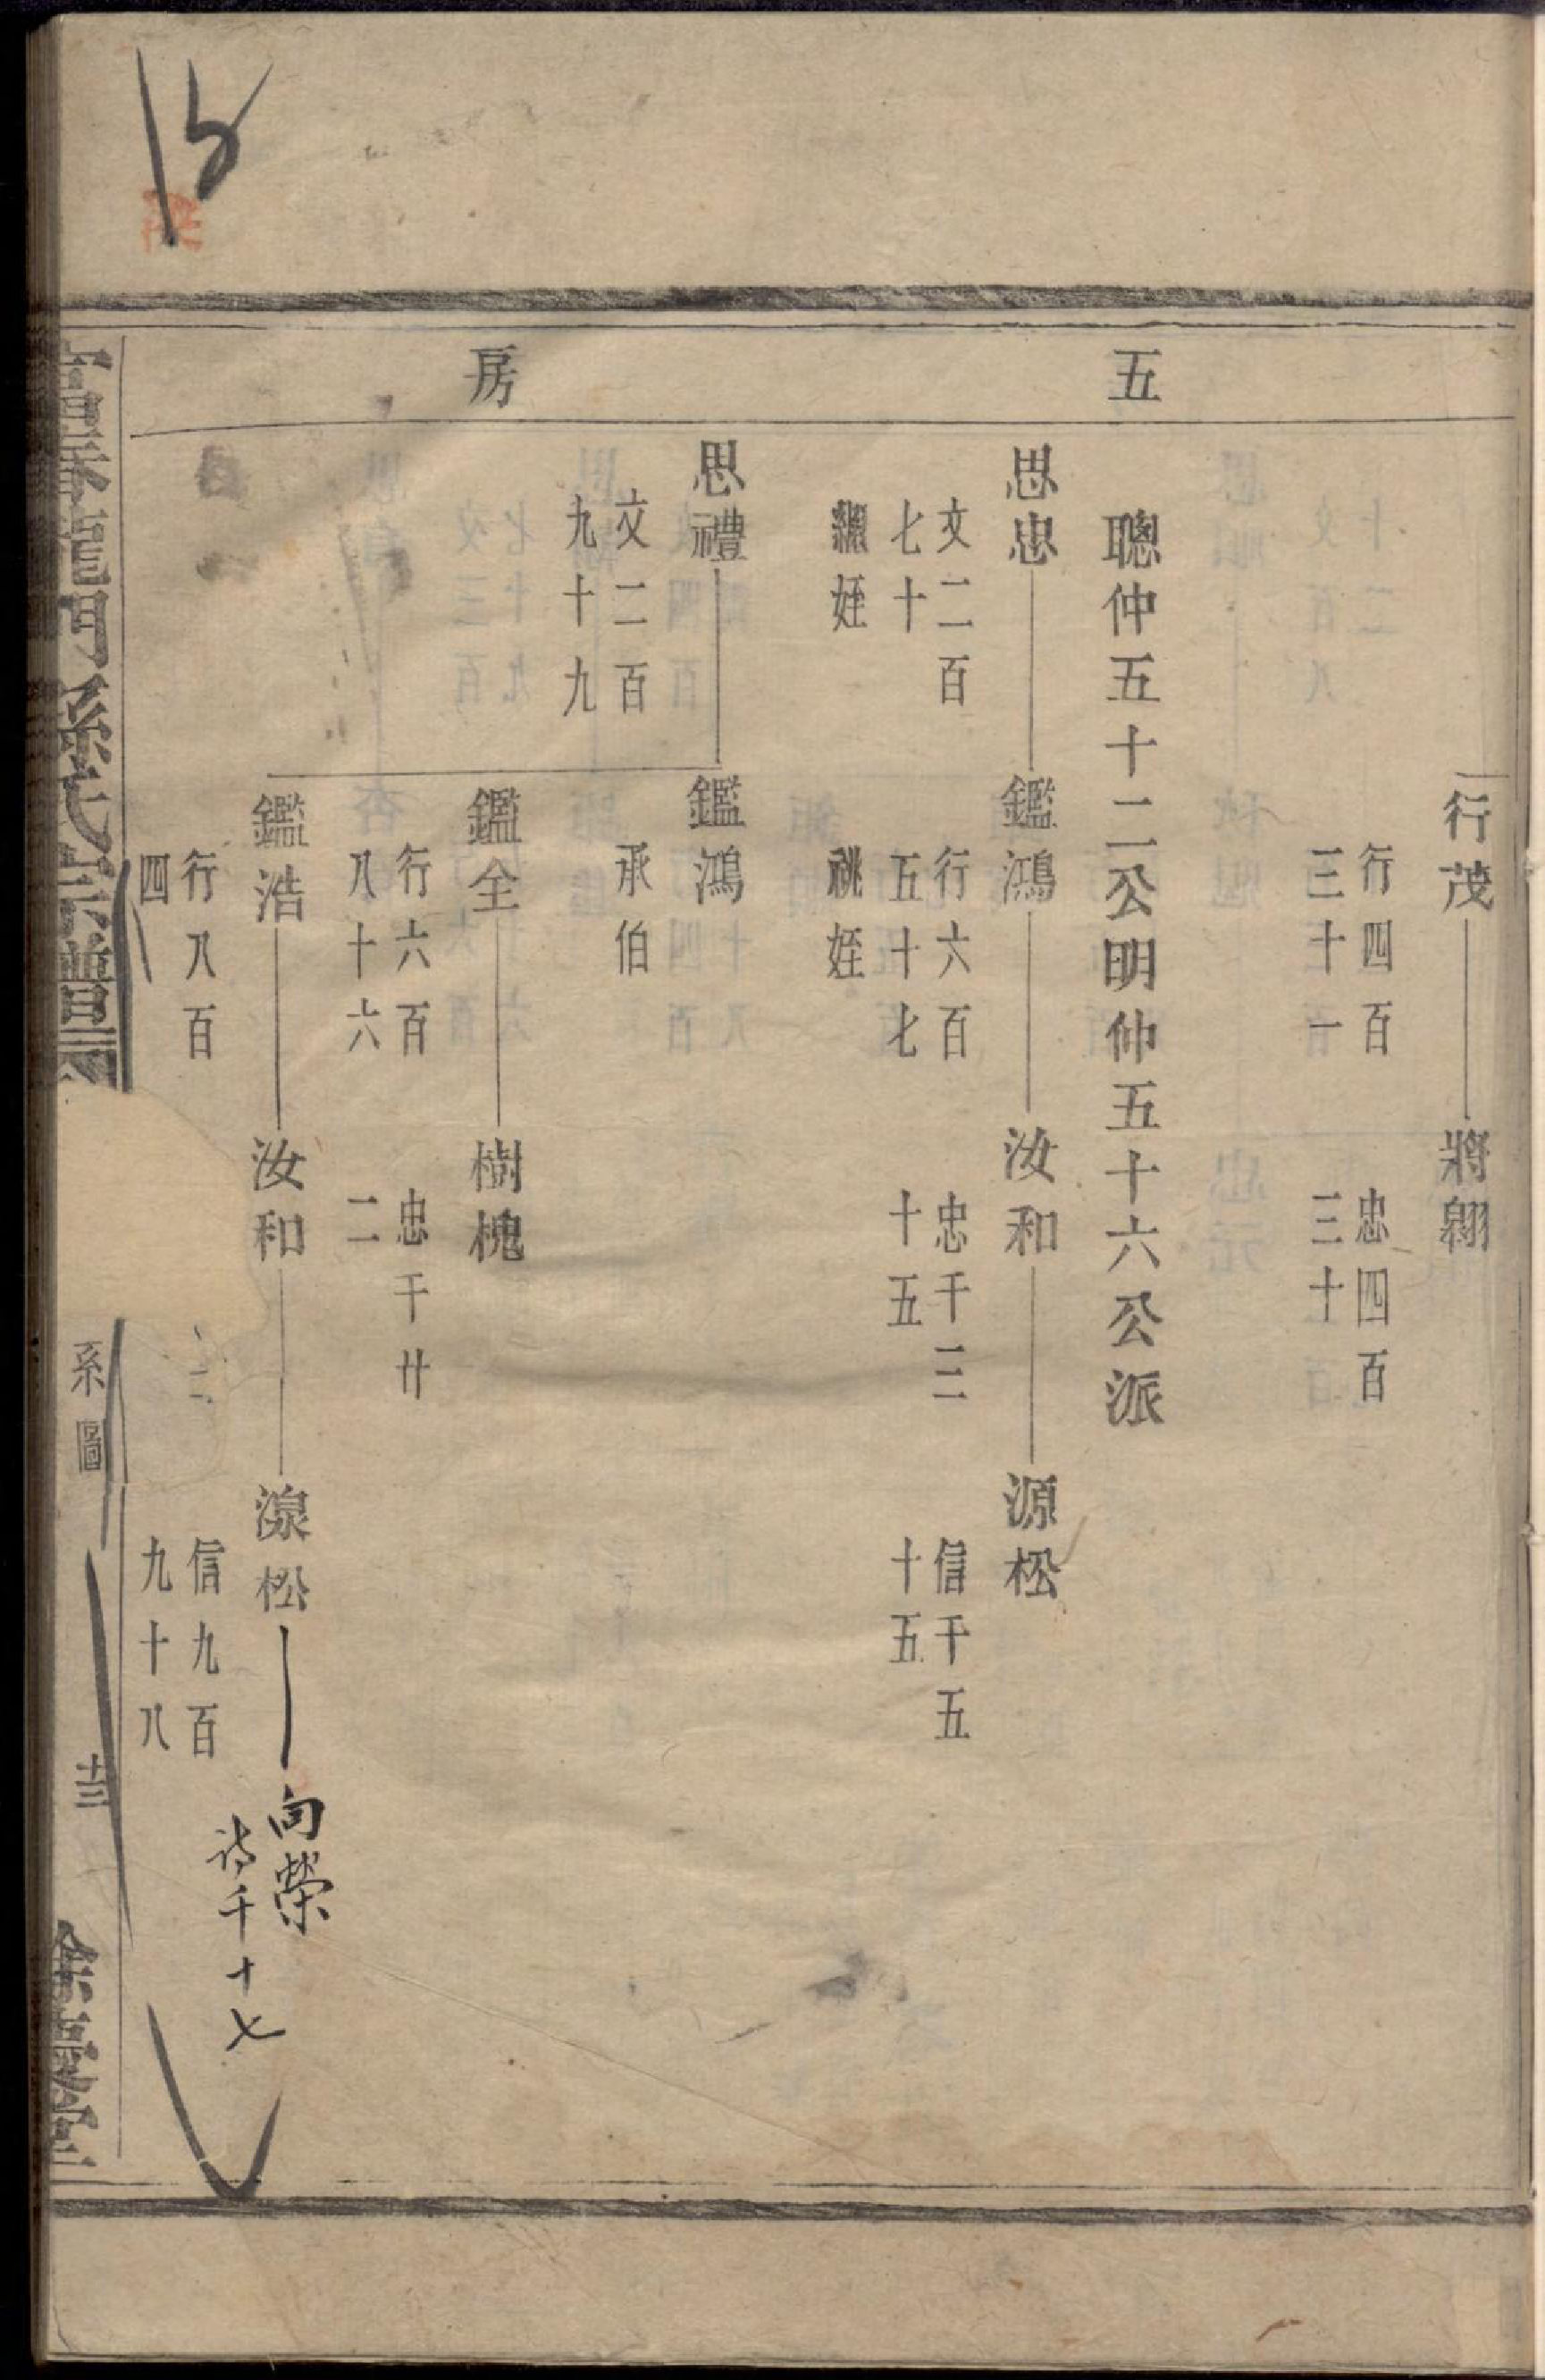 五房
行茂
行四百
三十一
將翺
忠四百
三十
聰仲五十二公明仲五十六公派
思忠
文二百
七十
繼姪
鑑鴻
行六百
五十七
祧姪
汝和
忠千三
十五
源松
信千五
十五
思禮
文二百
九十九
鑑鴻
承伯
鑑全
行六百
八十六
樹槐
忠千廿
二
鑑浩
行八百
四
汝和
二
源松
信九百
九十八
向榮
詩千十七
富春龍門孫氏宗譜
系圖
十三
餘慶堂
15